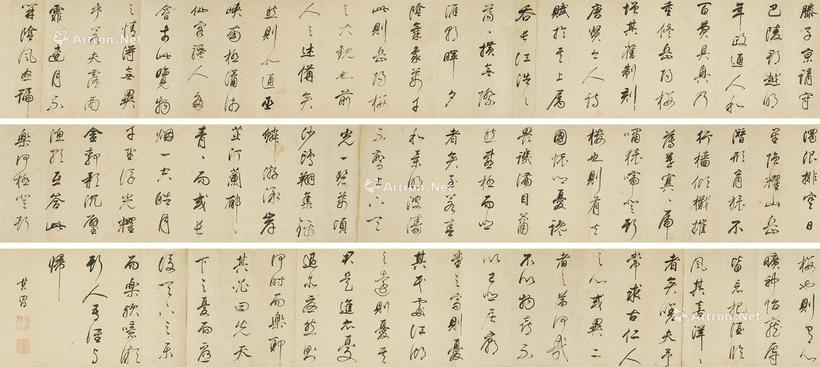 滕子京謫守
巴陵郡越明
年政通人和
百廢具興乃
重修岳陽樓
增其舊制刻
唐賢今人詩
賦於其上屬
吞長江浩〻
蕩〻橫無際
涯朝暉夕
陰氣象萬千
此則岳陽樓
之大觀也前
人之述備矣
然則北通巫
峽南極瀟湘
客騷人多
會於此覽物
之情得無異
乎若夫霪雨
霏連月不
開陰風怒號
濁浪排空日
星隱耀山岳
潛形商旅不
行檣傾楫摧
薄暮冥〻虎
嘯猿啼登斯
樓也則有去
國懷鄉憂讒
畏譏滿目蕭
然感極而悲
者矣至若春
和景明波瀾
不驚上下天
光一碧萬頃
沙鷗翔集錦
鱗游泳岸
芷汀蘭郁〻
青〻而或長
烟一空皓月
千里浮光耀
金靜影沉璧
漁歌互答此
樂何極登斯
樓也則有心
曠神怡寵辱
皆忘把酒臨
風其喜洋〻
者矣嗟夫予
嘗求古仁人
之心或異二
者之為何哉
不以物喜不
以己悲居廟
堂之高則憂
其民處江湖
之遠則憂其
君是進亦憂
退亦憂然則
何時而樂耶
其必曰先天
下之憂而憂
後天下之樂
而樂歟噫微
斯人吾誰與
歸
其昌
Artron.Net
Artron.Net
Artron.Net